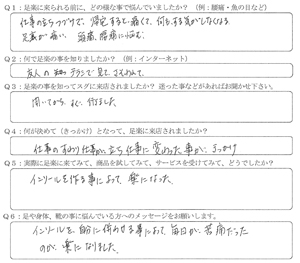 Q1：足楽に来られる前に、どの様な事で悩んでいましたか？（例：腰痛・魚の目など）
仕事の立ちつづけで、帰宅すると痛くて、何もする気がしなくなる
足裏が痛い、 腰痛に悩む。
Q2：何で足楽の事を知りましたか？（例：インターネット）
友人の チラシで見て、
Q3：足楽の事を知ってスグに来店されましたか？ 迷った事などがあればお聞かせ下さい。
聞いてから、すぐ、行きました
Q4：何が決めて（きっかけ）となって、足楽に来店されましたか？
仕事のすわり仕事が立ち仕事に変わった事が、きっかけ
Q5：実際に足楽に来てみて、商品を試してみて、サービスを受けてみて、どうでしたか？
インソールを作る事によって、楽になった。
Q6：足や身体、靴の事に悩んでいる方へのメッセージをお願いします。
インソールを、自分に合わせる事によって、毎日が、苦痛だった
のが、楽になりました。